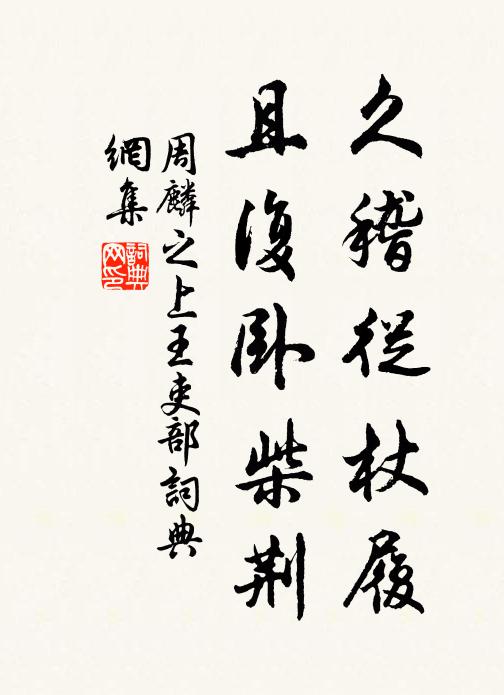 久稽從杖屨
且復卧柴荆
周麟之上王吏部詞典
網集
詞典
网印